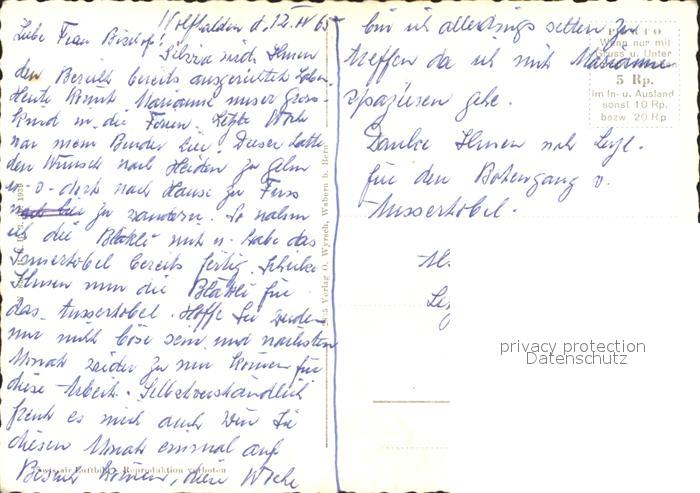 Wolfhalden d. 12. IV 65
Liebe Frau Bischof!
Silvia wird Ihnen
den Bericht bereits ausgerichtet haben.
Heute kommt Marianne unser Gross-
kind in die Ferien. Letzte Woche
war mein Bruder hier. Dieser hatte
den Wunsch nach Heiden zu gehen
u. v. dort nach Hause zu Fuss
zu wandern. So nahm
ich die Blättli mit u. habe das
Innertobel bereits fertig. Schicke
Ihnen nun die Blättli für
das Aussertobel. Hoffe Sie werden
mir nicht böse sein und nächsten
Monat wieder zu mir kommen für
diese Arbeit. Selbstverständlich
freut es mich auch wenn Sie
diesen Monat einmal auf
Besuch kommen, diese Woche
bin ich allerdings selten zu
treffen da ich mit Marianne
spazieren gehe.
Danke Ihnen noch
für den Botengang v.
Aussertobel.
PORTO
Wenn nur mit
Gruss u. Unter
5 Rp.
im In- u. Ausland
sonst 10 Rp.
bezw 20 Rp
Verlag O. Wyrsch, Wabern b. Bern
Swissair Luftbild - Reproduktion verboten
privacy protection
Datenschutz